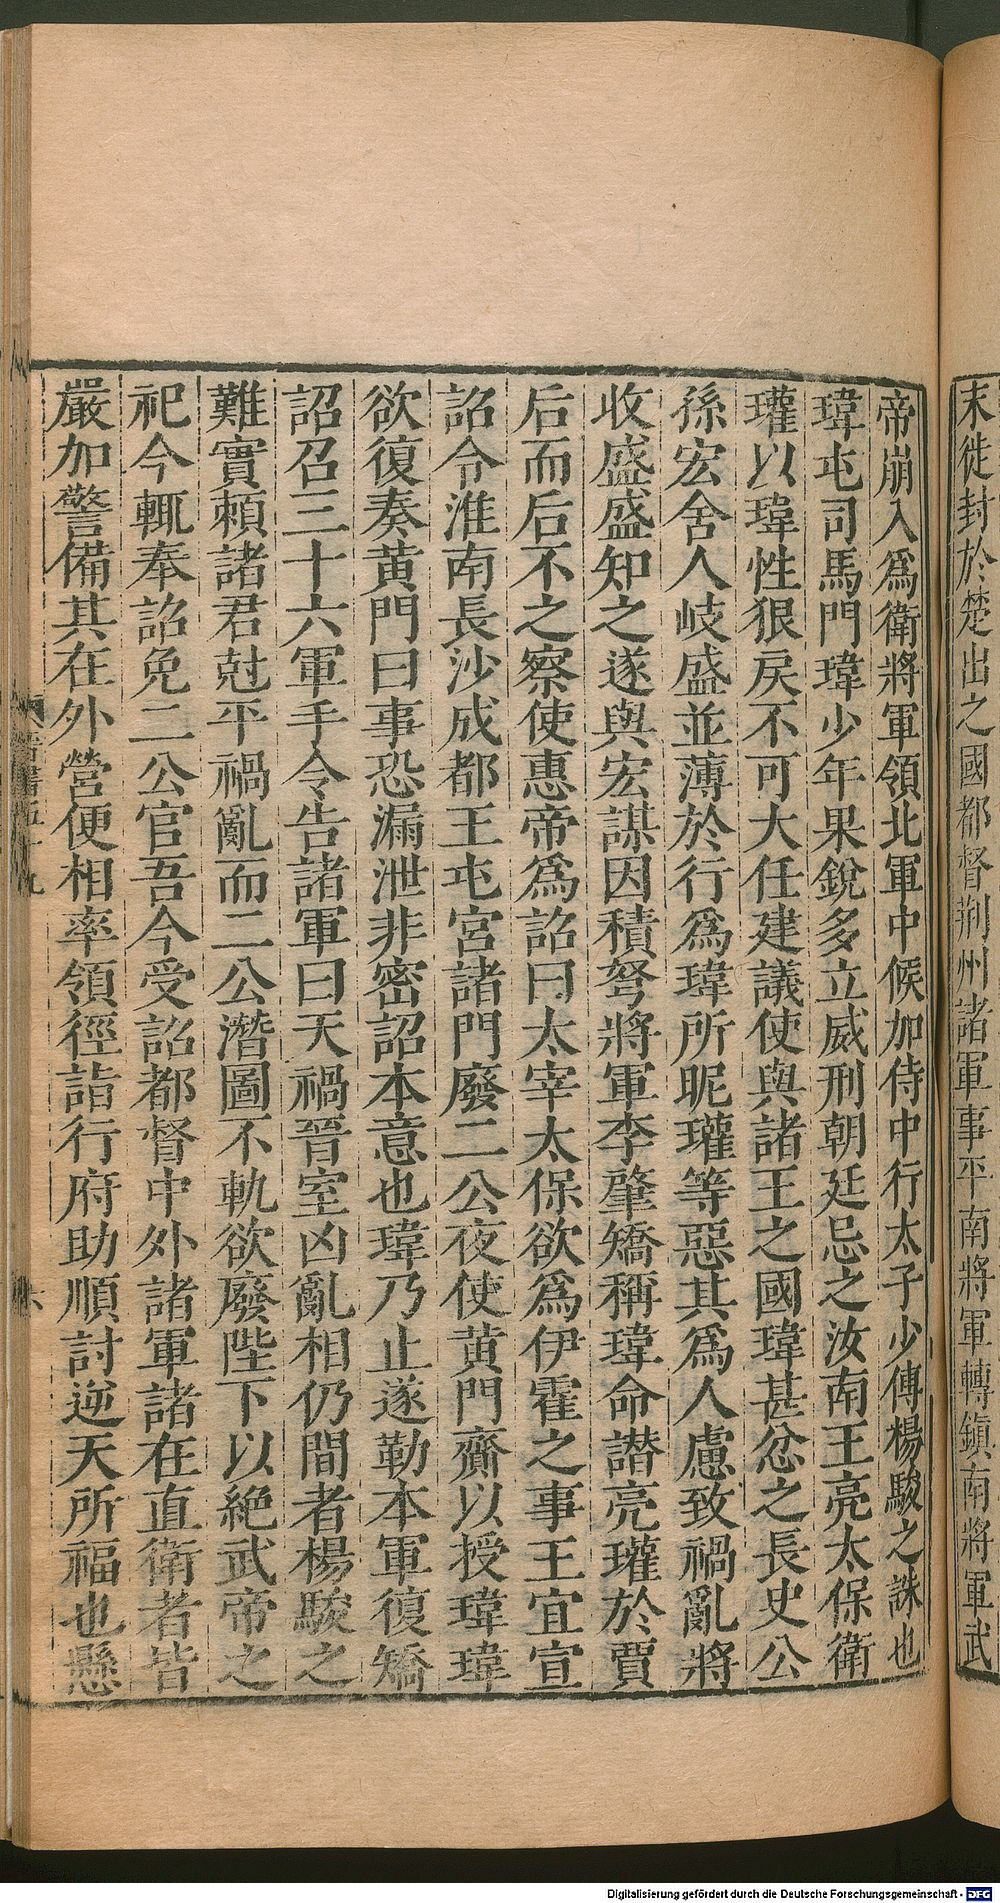 末徙封於楚出之國都督荆州諸軍事平南將軍轉鎮南將軍武
帝崩入爲衛將軍領北軍中候加侍中行太子少傅楊駿之誅也
瑋屯司馬門瑋少年果銳多立威刑朝廷忌之汝南王亮太保衛
瓘以瑋性狠戾不可大任建議使與諸王之國瑋甚忿之長史公
孫宏舍人岐盛並薄於行爲瑋所昵瓘等惡其爲人慮致禍亂將
收盛盛知之遂與宏謀因積弩將軍李肇矯稱瑋命譖亮瓘於賈
后而后不之察使惠帝爲詔曰太宰太保欲爲伊霍之事王宜宣
詔令淮南長沙成都王屯宮諸門廢二公夜使黄門齎以授瑋瑋
欲復奏黄門曰事恐漏泄非密詔本意也瑋乃止遂勒本軍復矯
詔召三十六軍手令告諸軍曰天禍晉室凶亂相仍間者楊駿之
難實頼諸君尅平禍亂而二公潛圖不軌欲廢陛下以絶武帝之
祀今輒奉詔免二公官吾今受詔都督中外諸軍諸在直衛者皆
嚴加警備其在外營便相率領徑詣行府助順討逆天所福也懸
晉書五十九
六
Digitalisierung gefördert durch die Deutsche Forschungsgemeinschaft - DFG